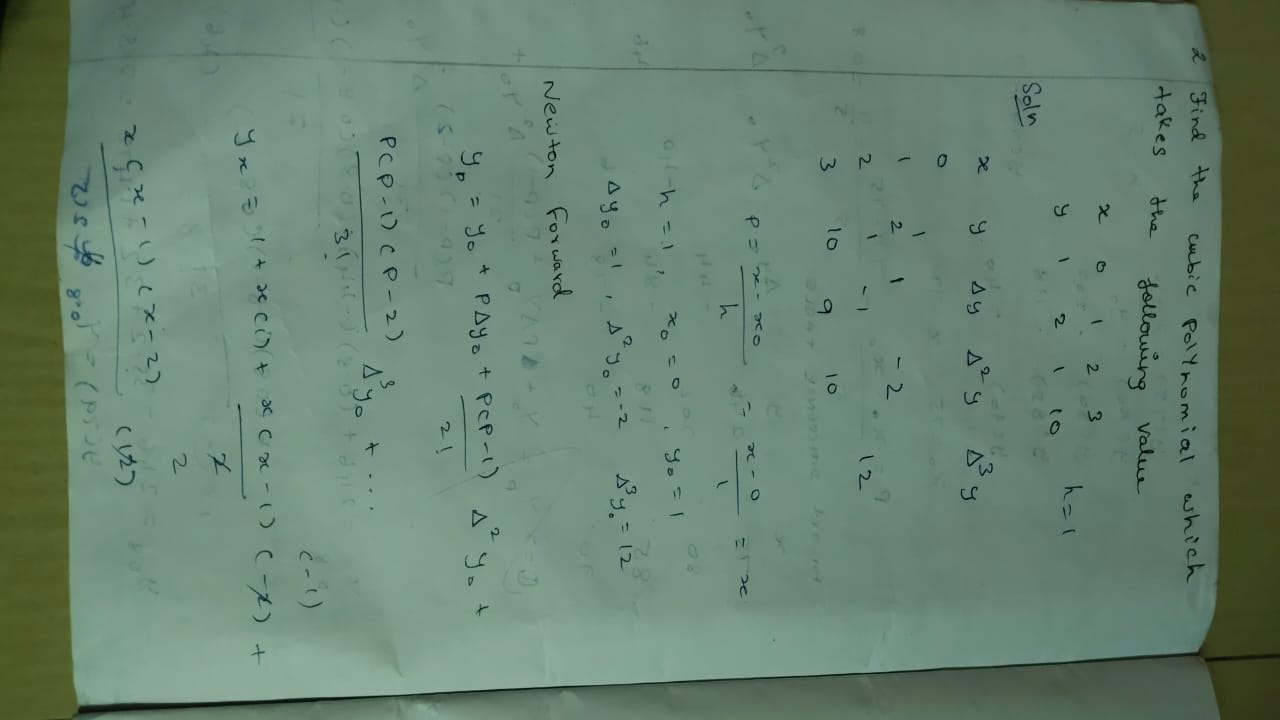 2 Find the cubic polynomial which
takes the following value
x 0 1 2 3
y 1 2 1 10 h=1
Soln
x y Δy Δ²y Δ³y
0
1
1 2 1 -2
2 1 -1 12
3 10 9 10
P = x-x₀/h = x-0/1 = x
h=1, x₀=0, y₀=1
Δy₀=1, Δ²y₀=-2 Δ³y₀=12
Newton Forward
yₚ = y₀ + PΔy₀ + P(P-1)/2! Δ²y₀ +
P(P-1)(P-2)/3! Δ³y₀ + ...
(-1)
yₓ = 1 + x(1) + x(x-1)/2 (-2) +
2
x(x-1)(x-2) (12)